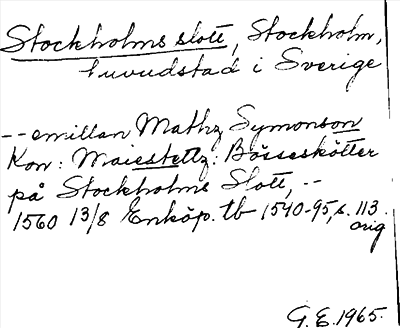 Stockholms slott, Stockholm,
huvudstad i Sverige
-- emillan Mathz Symonson
Kon: Maiestettz: Bösseskötter
på Stockholms Slott, --
1560 13/8 Enköp. tb 1540-95, s. 113.
orig
G.E. 1965.